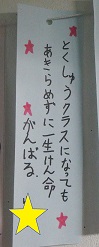 とくしゅうクラスになっても
あきらめずに一生けん命
がんばる。